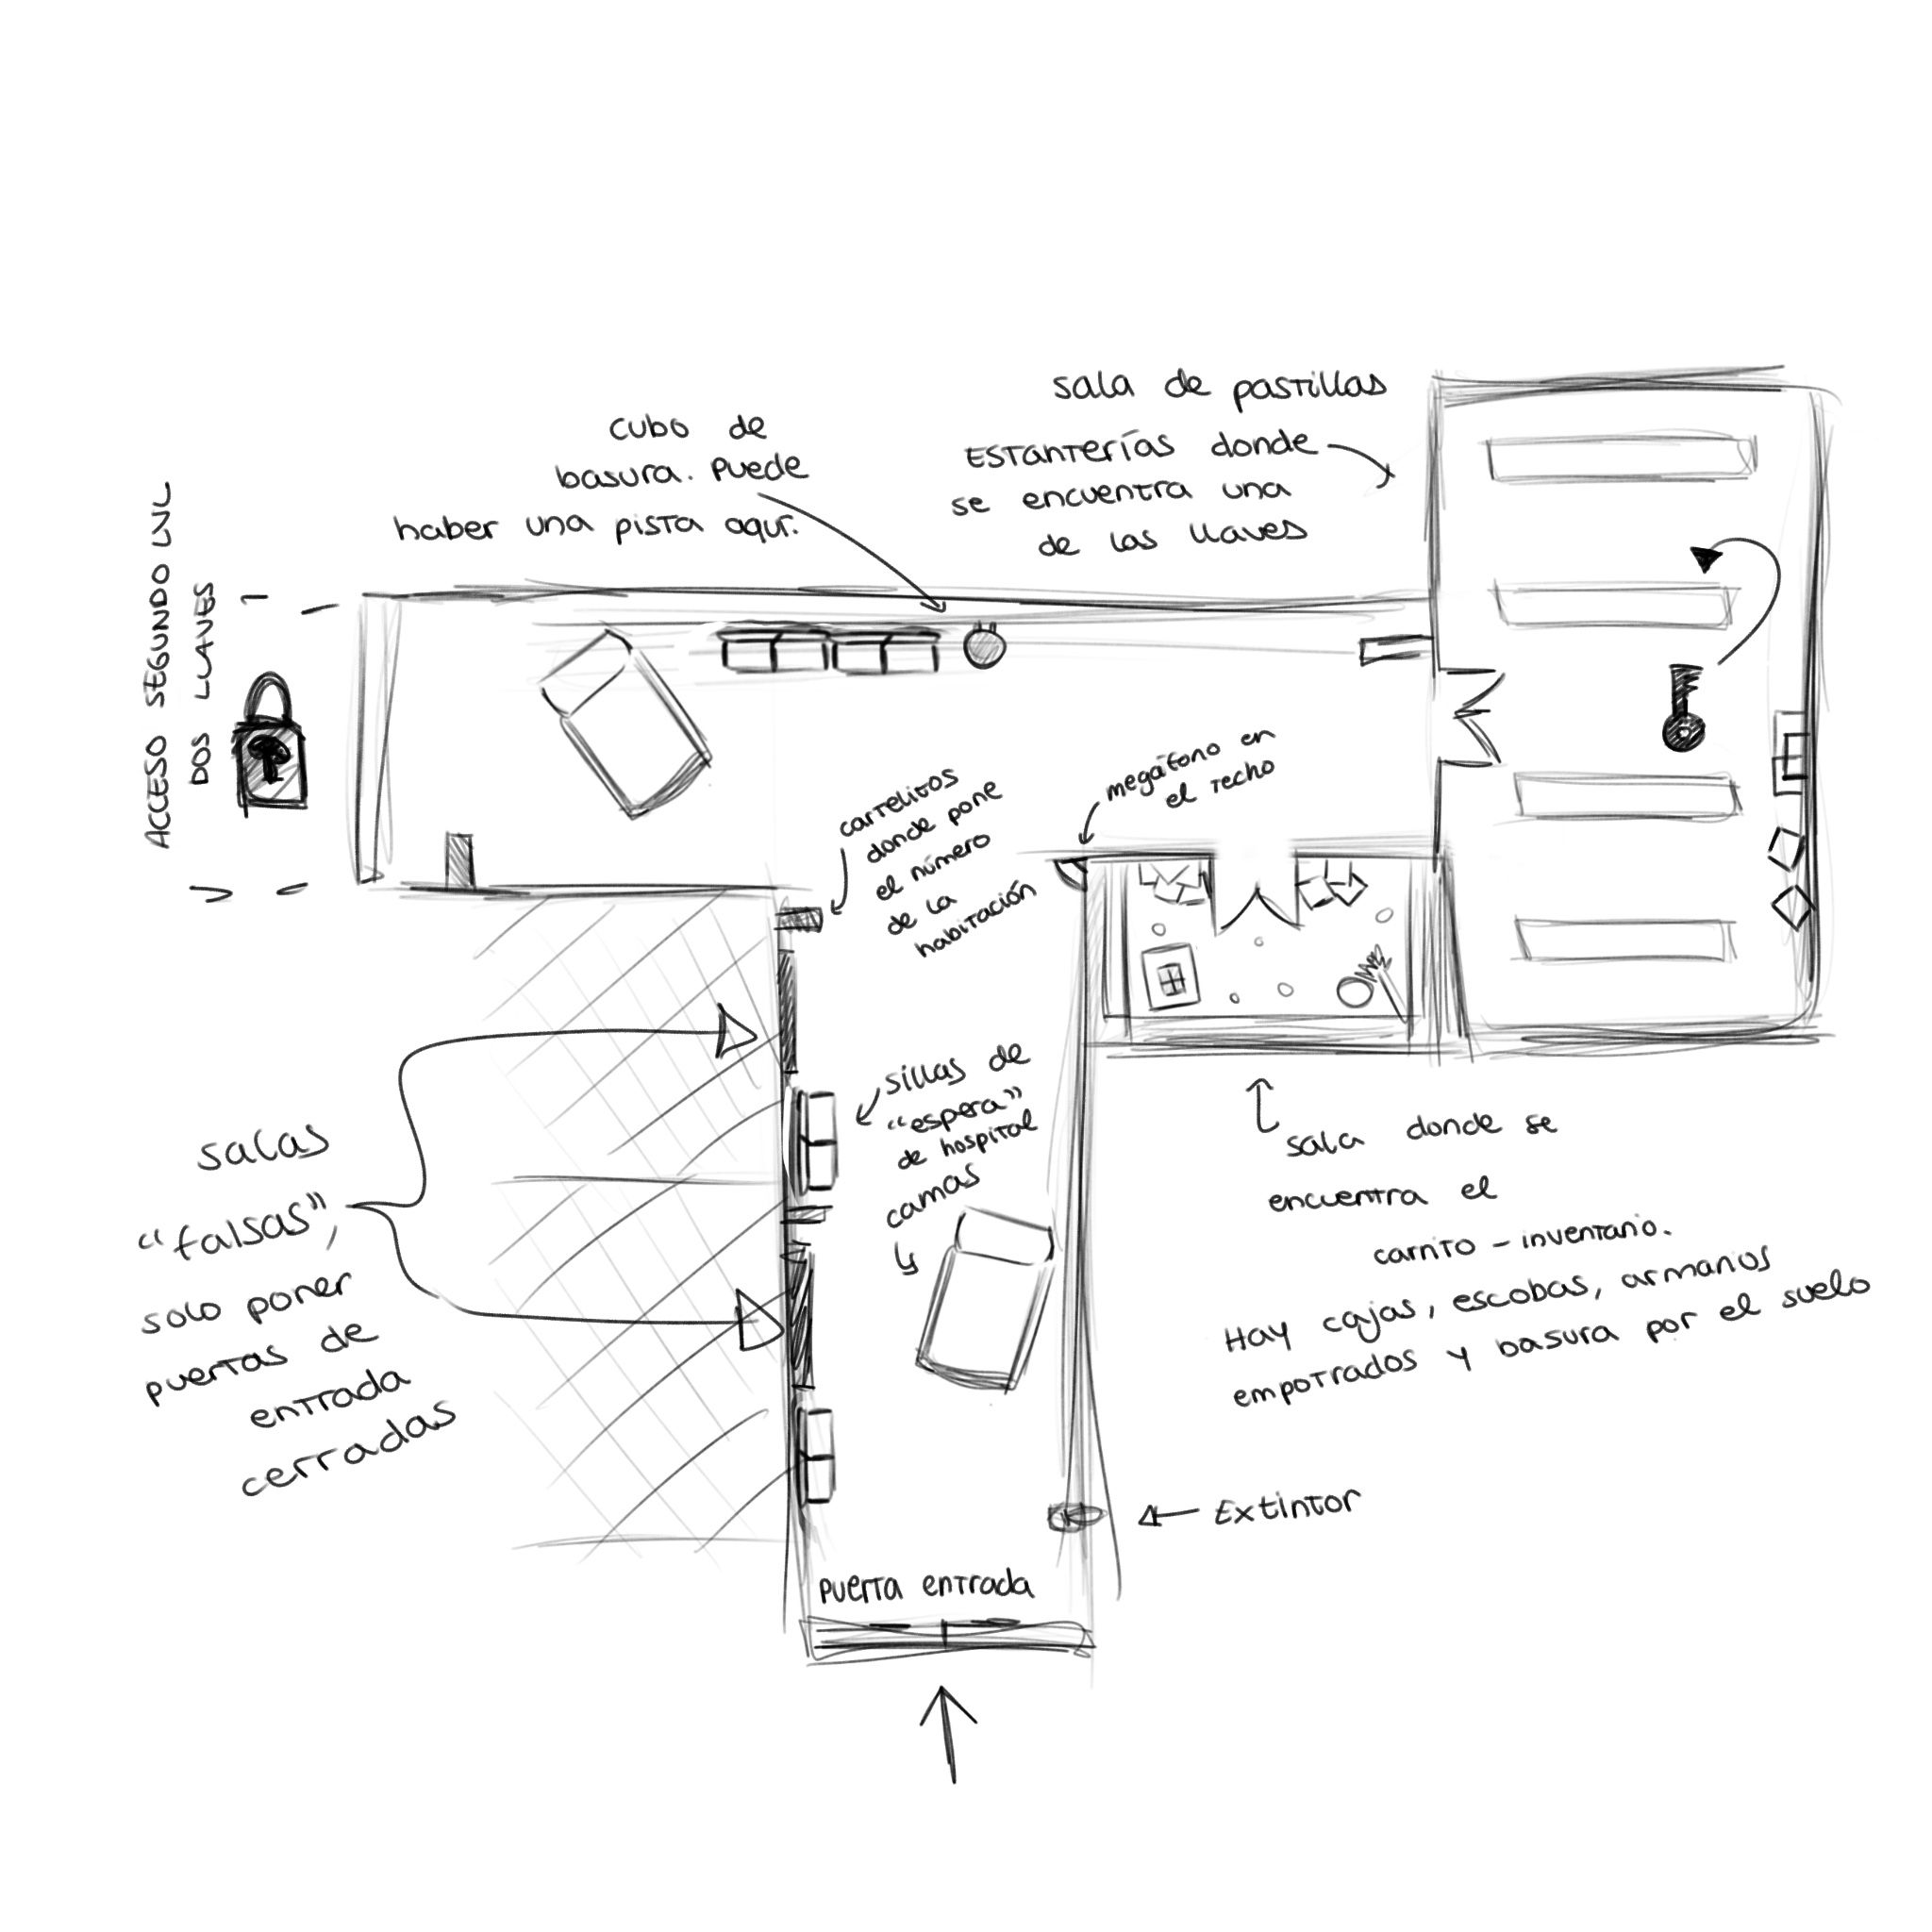 sala de pastillas
Estanterías donde
se encuentra una
de las llaves
cubo de
basura. Puede
haber una pista aquí.
ACCESO SEGUNDO LVL
DOS LLAVES
megáfono en
el techo
cartelitos
donde pone
el número
de la
habitación
sillas de
“espera”
de hospital
camas
salas
“falsas”,
solo poner
puertas de
entrada
cerradas
sala donde se
encuentra el
carrito - inventario.
Hay cajas, escobas, armarios
empotrados y basura por el suelo
Extintor
puerta entrada